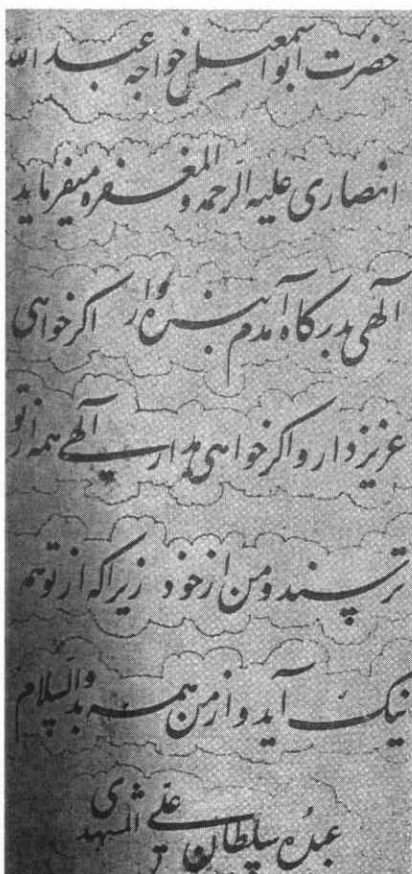 حضرت ابو اسمعیل خواجه عبد الله
انصاری علیه الرحمه و المغفره میفرماید
الهی بدرکاه آمدم بنده وار اکر خواهی
عزیز دار و اکر خواهی مدار الهی همه از تو
ترسند و من از خود زیرا که از تو همه
نیک آید و از من همه بد والسلام
عبده سلطان علی المشهدی